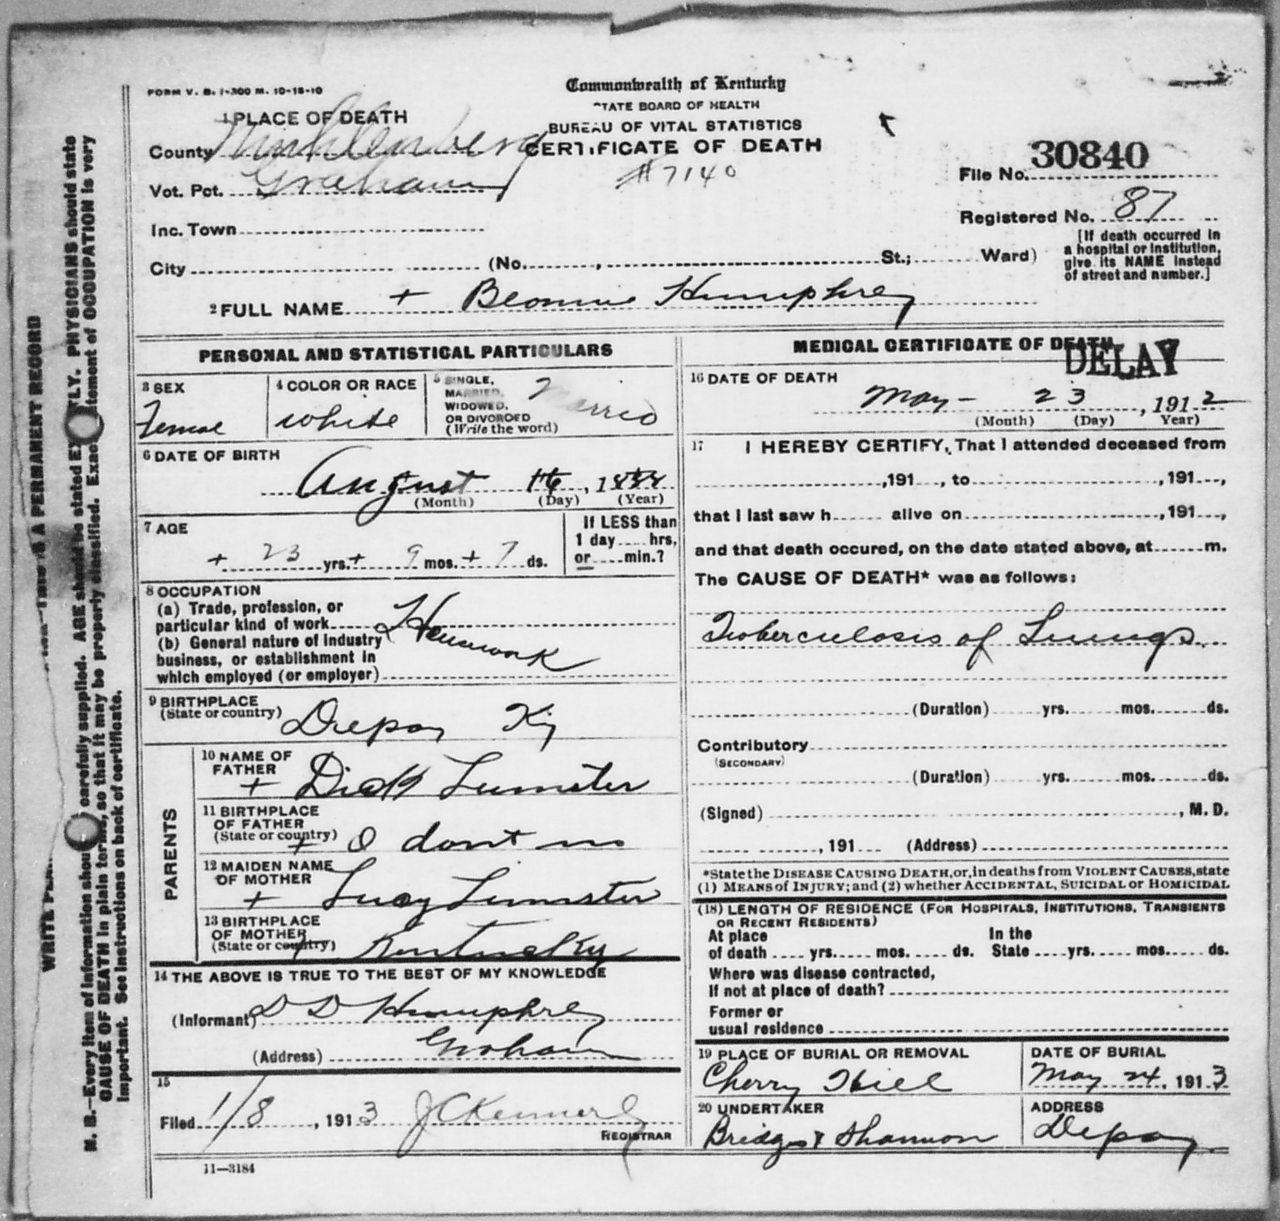 FORM V. S. 1-300 M. 10-15-10
Commonwealth of Kentucky
STATE BOARD OF HEALTH
BUREAU OF VITAL STATISTICS
CERTIFICATE OF DEATH
#7140
1 PLACE OF DEATH
County Muhlenberg
Vot. Pct. Graham
Inc. Town
City (No. , St.; Ward)
File No. 30840
Registered No. 87
[If death occurred in
a hospital or institution,
give its NAME instead
of street and number.]
2 FULL NAME + Humphrey
PERSONAL AND STATISTICAL PARTICULARS
3 SEX
Female
4 COLOR OR RACE
white
5 SINGLE,
MARRIED,
WIDOWED,
OR DIVORCED
(Write the word)
Married
6 DATE OF BIRTH
August 16, 1888
(Month) (Day) (Year)
7 AGE
+ 23 yrs. + 9 mos. + 7 ds.
If LESS than
1 day hrs,
or min.?
8 OCCUPATION
(a) Trade, profession, or
particular kind of work
(b) General nature of industry
business, or establishment in
which employed (or employer)
Housework
9 BIRTHPLACE
(State or country)
Depoy Ky
PARENTS
10 NAME OF
FATHER
+ Dick Lumster
11 BIRTHPLACE
OF FATHER
(State or country)
+ I dont no
12 MAIDEN NAME
OF MOTHER
+ Lucy Lumster
13 BIRTHPLACE
OF MOTHER
(State or country)
+ Kentucky
14 THE ABOVE IS TRUE TO THE BEST OF MY KNOWLEDGE
(Informant) D D Humphrey
(Address) Graham
15
Filed 1/8, 1913 J C Kennerly
REGISTRAR
11—3184
MEDICAL CERTIFICATE OF DEATH
DELAY
16 DATE OF DEATH
May - 23, 1912
(Month) (Day) Year)
17 I HEREBY CERTIFY, That I attended deceased from
,191 , to ,191 ,
that I last saw h alive on ,191 ,
and that death occured, on the date stated above, at m.
The CAUSE OF DEATH* was as follows:
Tuberculosis of Lungs.
(Duration) yrs. mos. ds.
Contributory
(SECONDARY)
(Duration) yrs. mos. ds.
(Signed) , M. D.
, 191 (Address)
*State the DISEASE CAUSING DEATH, or, in deaths from VIOLENT CAUSES, state
(1) MEANS of INJURY; and (2) whether ACCIDENTAL, SUICIDAL or HOMICIDAL
(18) LENGTH OF RESIDENCE (FOR HOSPITALS, INSTITUTIONS, TRANSIENTS
OR RECENT RESIDENTS)
At place
of death yrs. mos. ds.
In the
State yrs. mos. ds.
Where was disease contracted,
If not at place of death?
Former or
usual residence
19 PLACE OF BURIAL OR REMOVAL
Cherry Hill
DATE OF BURIAL
May 24, 1913
20 UNDERTAKER
Bridges & Shannon
ADDRESS
Depoy
N. B.—Every item of information should carefully supplied. AGE should be stated EXACTLY. PHYSICIANS should state
CAUSE OF DEATH in plain terms, so that it may be properly classified. Exact statement of OCCUPATION is very
important. See instructions on back of certificate.
IS A PERMANENT RECORD